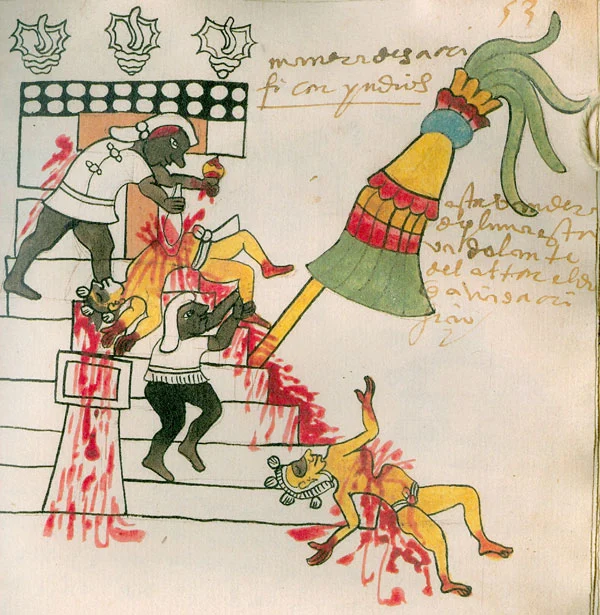 53
manera de sacri
fi car yndios
esta vandera
de pluma esta
va delante
del altar